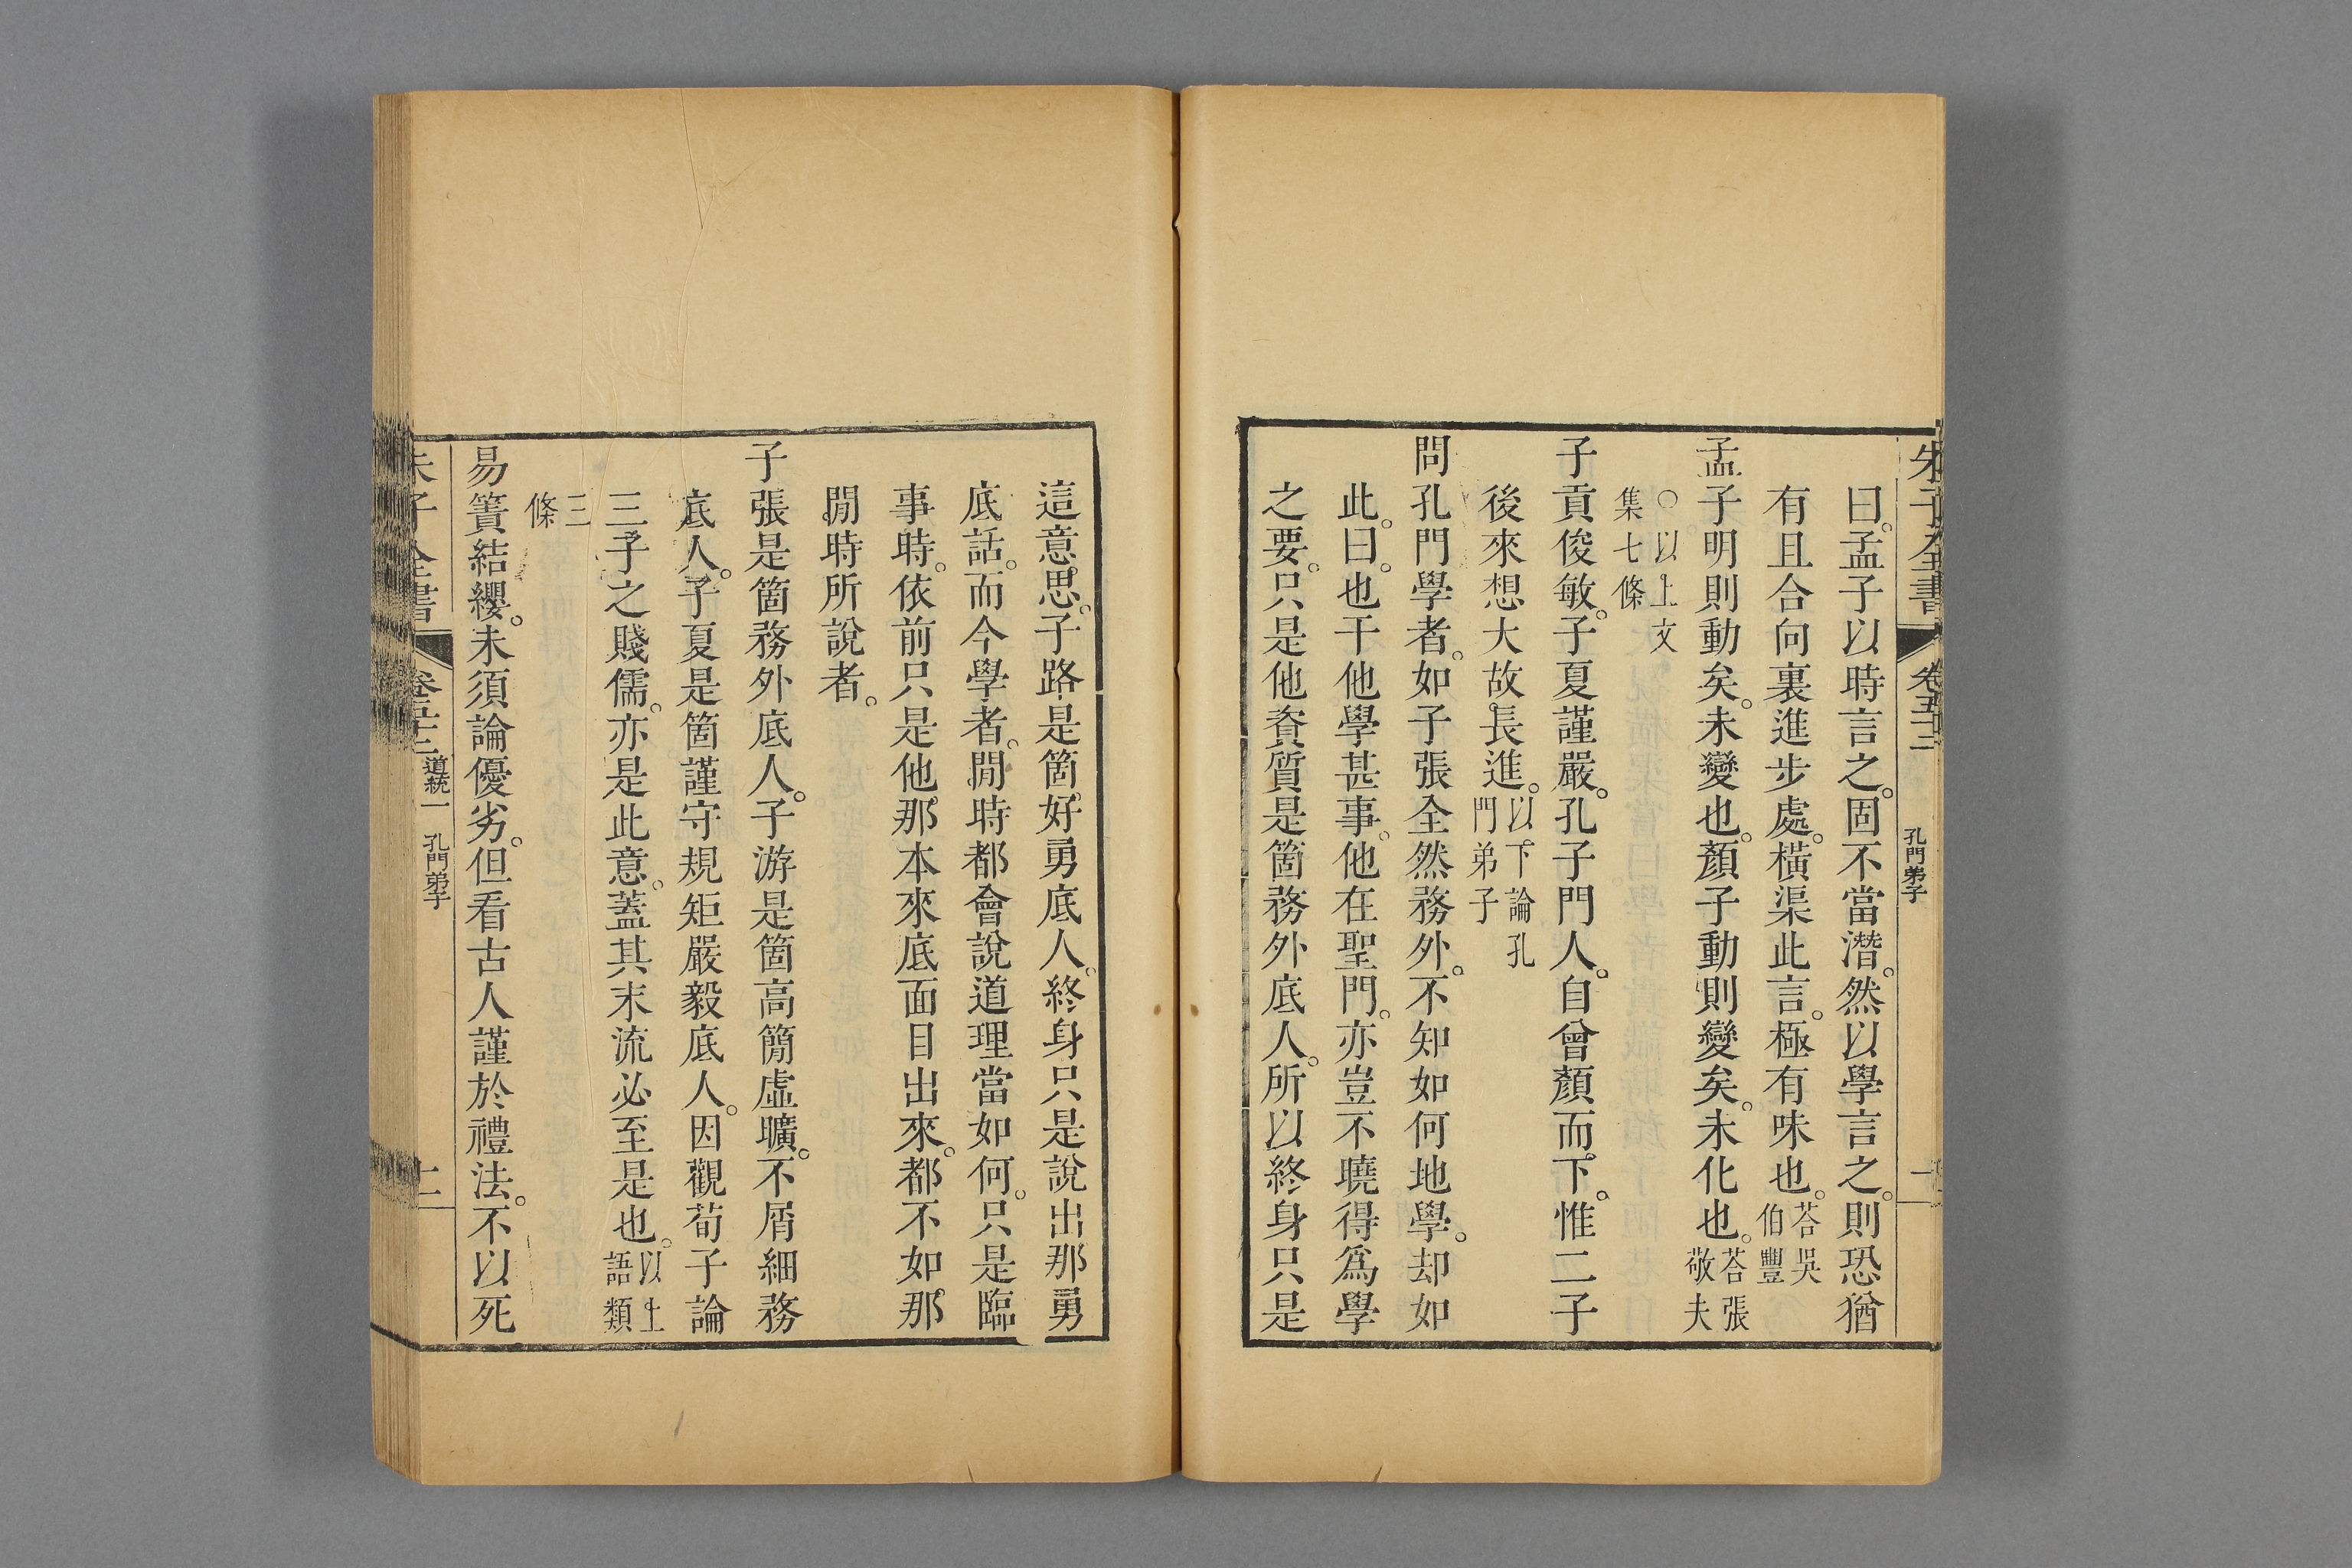 朱子全書 卷五十二 孔門弟子
曰。孟子以時言之。固不當潛。然以學言之。則恐猶
有且合向裏進步處。橫渠此言。極有味也。荅吳伯豐
孟子明則動矣。未變也。顏子動則變矣。未化也。荅張敬夫
○以上文集七條
子貢俊敏。子夏謹嚴。孔子門人。自曾顏而下。惟二子
後來想大故長進。以下論孔門弟子
問孔門學者。如子張全然務外。不知如何地學。却如
此。曰。也干他學甚事。他在聖門。亦豈不曉得爲學
之要。只是他資質是箇務外底人。所以終身只是
這意思。子路是箇好勇底人。終身只是說出那勇
底話。而今學者。閒時都會說道理當如何。只是臨
事時。依前只是他那本來底面目出來。都不如那
閒時所說者。
子張是箇務外底人。子游是箇高簡虛曠。不屑細務
底人。子夏是箇謹守規矩嚴毅底人。因觀荀子論
三子之賤儒。亦是此意。蓋其末流必至是也。以上語類
三條
易簀結纓。未須論優劣。但看古人謹於禮法。不以死
朱子全書 卷五十二 道統一 孔門弟子